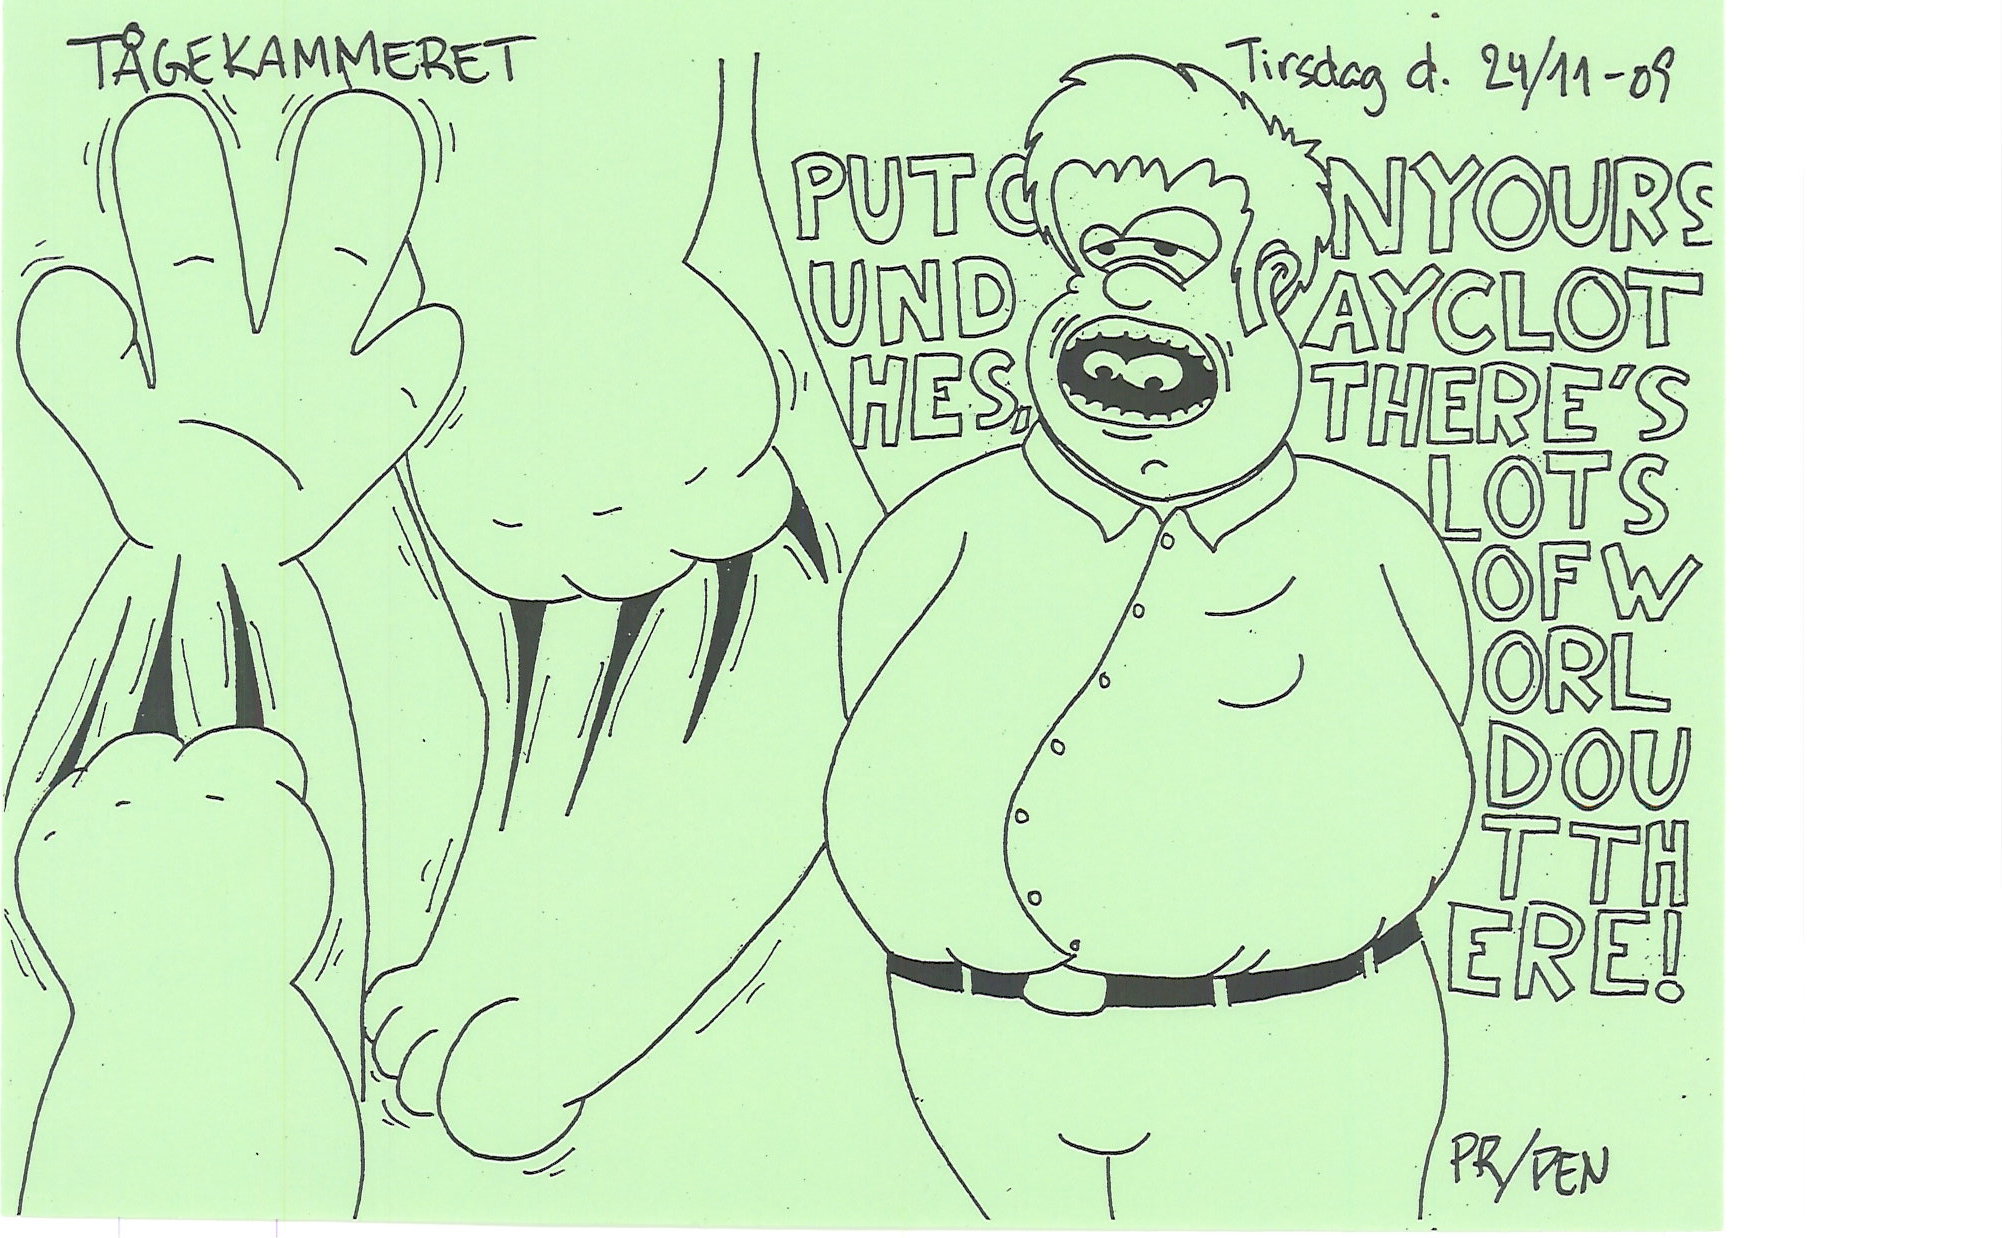 TÅGEKAMMERET
Tirsdag d. 24/11-09
PUT ONYOURS
UNDAYCLOT
HES, THERE'S
LOTS
OFW
ORL
DOU
TTH
ERE!
PR/PEN